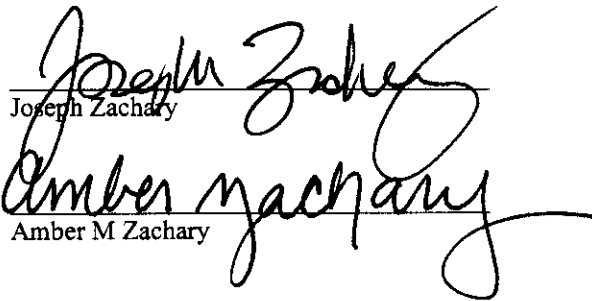 Joseph Zachary
Joseph Zachary
Amber Zachary
Amber M Zachary